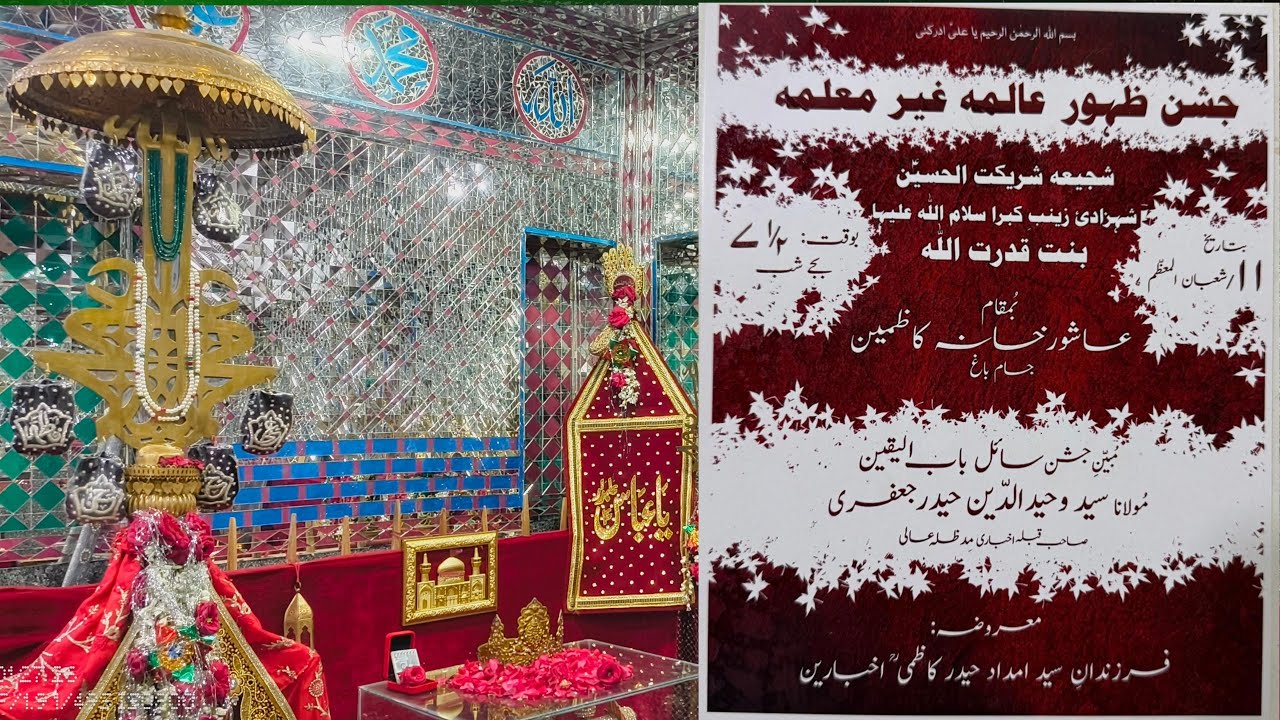 محمد
الله
یا عباس
بسم الله الرحمن الرحیم یا علیؑ ادرکنی
جشن ظہور عالمہ غیر معلمہ
شجیعہ شریکت الحسینؑ
شہزادیٔ زینب کبرا سلام الله علیہا
بنت قدرت الله
بتاریخ
۱۱/شعبان المعظّم
بوقت: ۷ ۱/۲
بجے شب
بمُقام
عاشورخانہ کاظمین
جام باغ
مبیّن جشن سائل باب الیقین
مولانا سید وحید الدّین حیدر جعفری
صاحب قبلہ اخباری مدظلہ عالی
معروضہ:
فرزندانِ سید امداد حیدر کاظمیؒ اخبارین